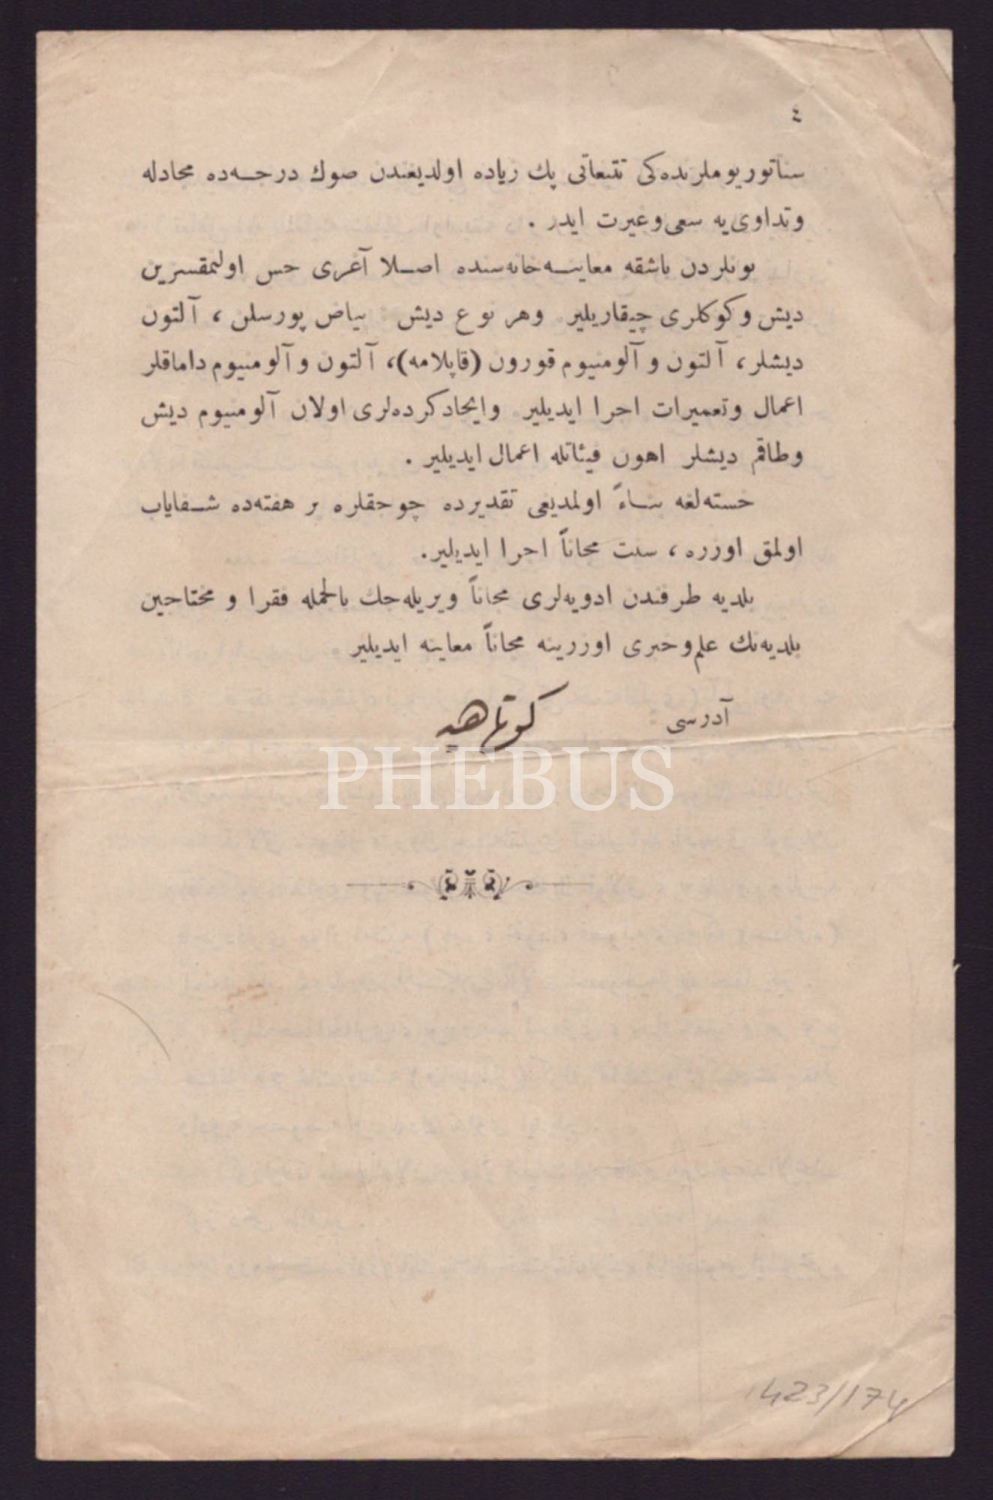 ٤
سناتوریوملرنده‌کی تتبعاتی پك زیاده اولدیغندن صوك درجه‌ده مجادله
وتداوی‌یه سعی‌وغیرت ایدر .
بونلردن باشقه معاینه‌خانه‌سنده اصلا آغری حس اولنمقسزین
دیش وکوکلری چیقاریلیر وهر نوع دیش : بیاض پورسلن ، آلتون
دیشلر، آلتون و آلومنیوم قورون (قاپلامه)، آلتون و آلومنیوم داماقلر
اعمال وتعمیرات اجرا ایدیلیر وایجادکرده‌لری اولان آلومنیوم دیش
وطاقم دیشلر اهون فیئاتله اعمال ایدیلیر .
خسته‌لغه بناءً اولمدیغی تقدیرده چوجقلره بر هفته‌ده شفایاب
اولمق اوزره ، سنت مجاناً اجرا ایدیلیر.
بلدیه طرفندن ادویه‌لری مجاناً ویریله‌جك بالجمله فقرا و محتاجین
بلدیه‌نك علم‌وخبری اوزرینه مجاناً معاینه ایدیلیر
آدرسی : كوتاهیه
PHEBUS
1423/174